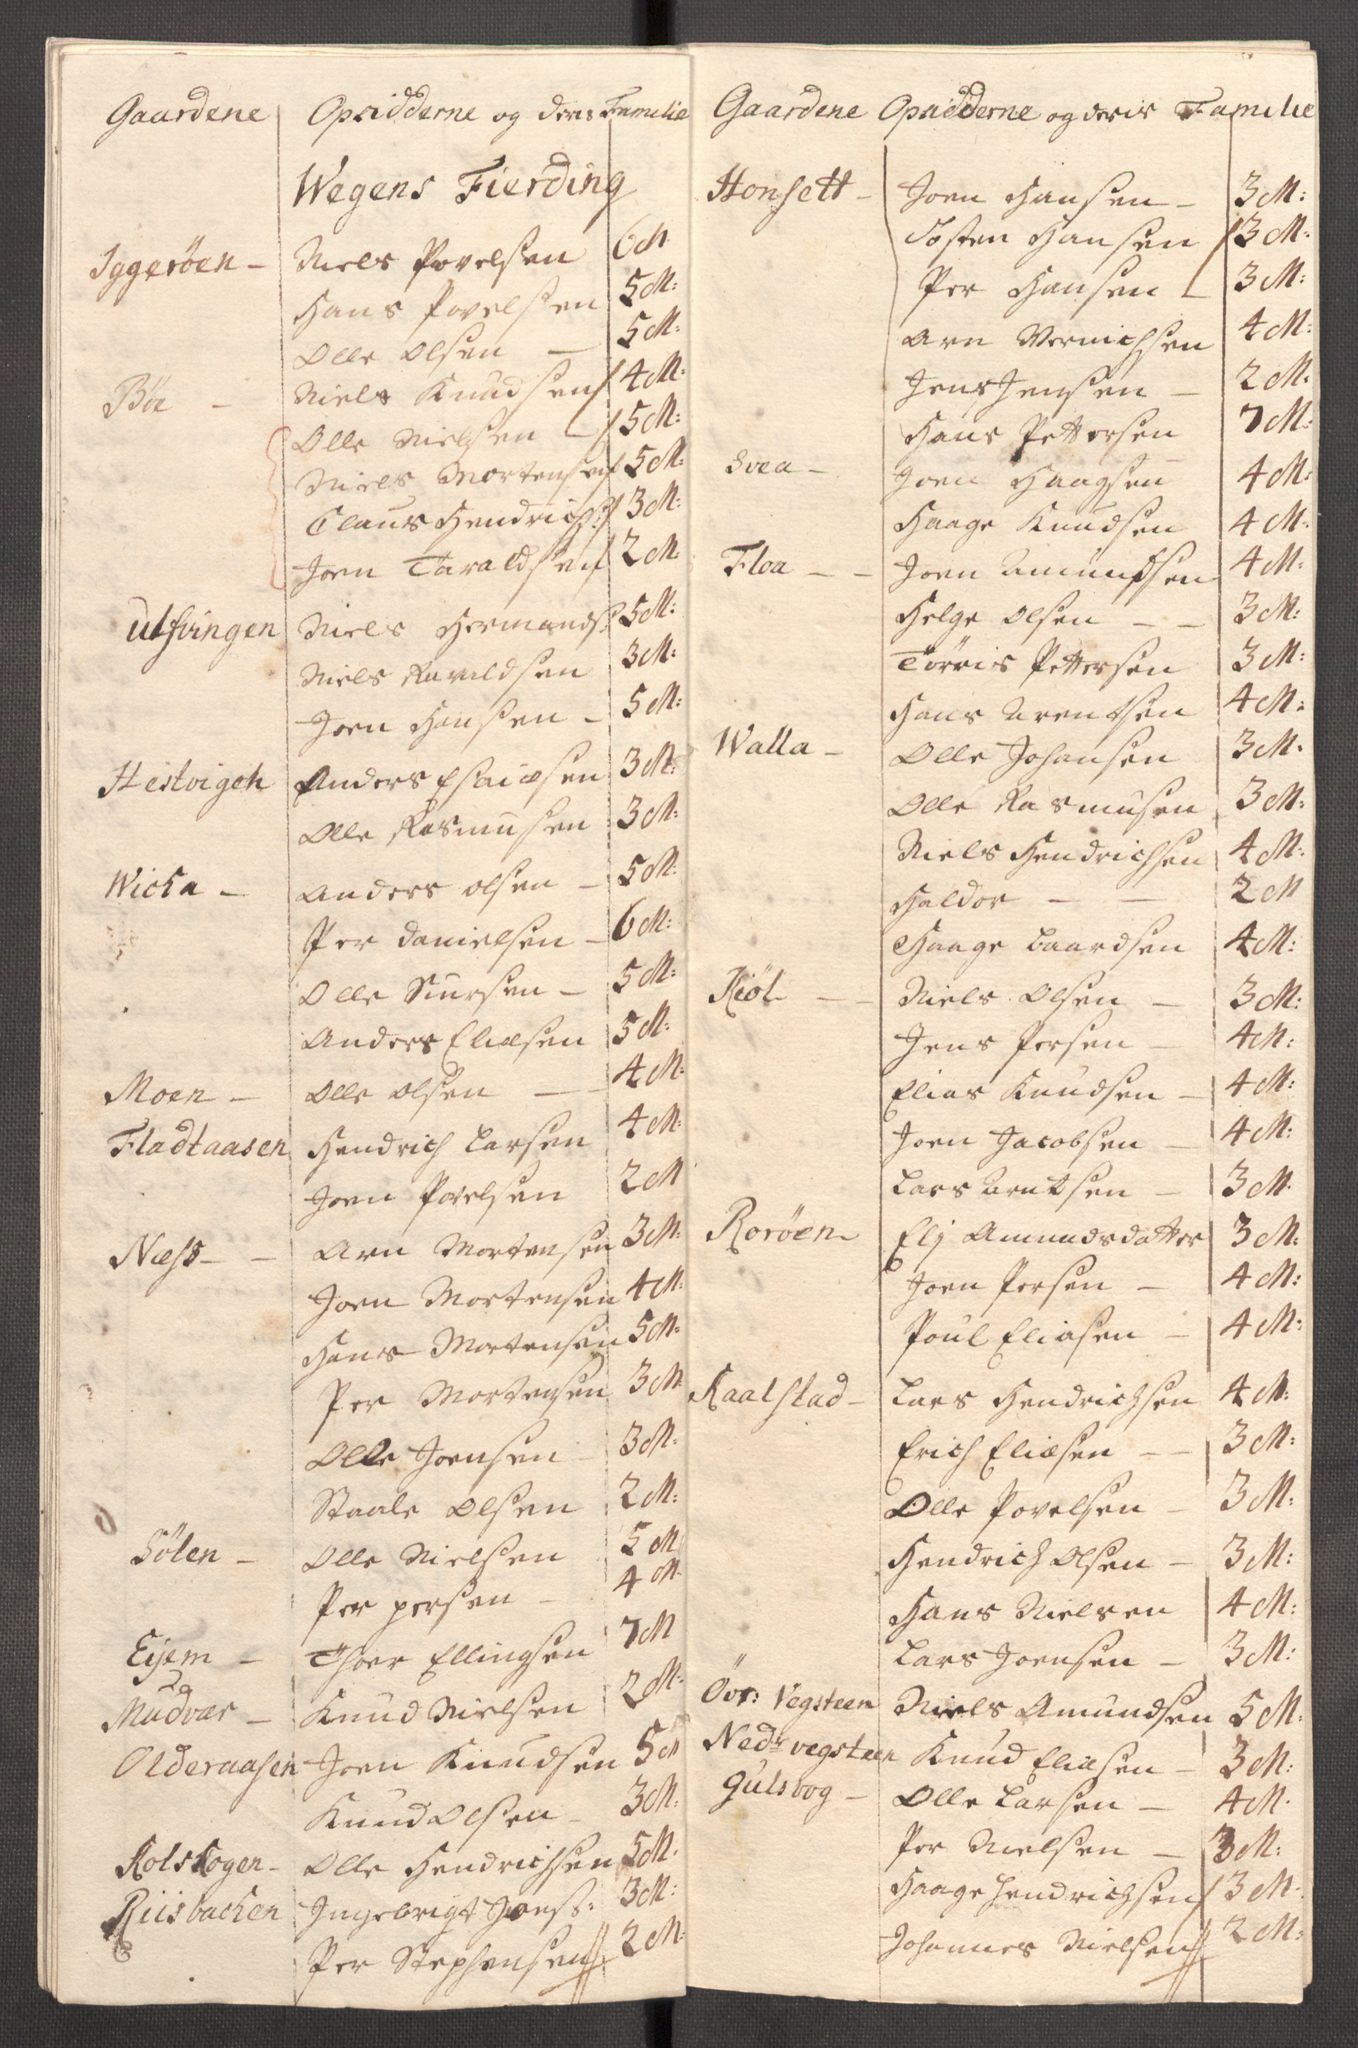 Gaardene Opsidderne og deris Familie
Wegens Fierding
Iggeröen - Niels Povelsen 6 M
Hans Povelsen 5 M:
Olle Olsen - 5 M:
Böe - Niels Knudsen 4 M:
Olle Nielsen - 5 M:
Niels Mortensen 5 M:
Claus Hendrichs: 3 M:
Joen Taraldsen 2 M
Utfvingen Niels Hermands: 5 M:
Niels Haraldsen 3 M:
Joen Hansen - 5 M:
Hestvigen Anders Esaiæsen 3 M:
Olle Rasmusen 3 M:
Wicka - Anders olsen - 5 M:
Per danielsen - 6 M:
Olle Siursen - 5 M:
Anders Eliæsen 5 M:
Moen - Olle olsen - 4 M:
Fladtaasen Hendrich Larsen 4 M:
Joen Povelsen 2 M
Næss - - Arn Mortensen 3 M:
Joen Mortensen 4 M:
Hans Mortensen 5 M:
Per Mortensen 3 M
Olle Joensen - 3 M:
Staale Olsen 2 M:
Sölen - Olle Nielsen 5 M
Per persen - 4 M
Eijem - Thoer Ellingsen 7 M
Mudvær - Knud Nielsen 2 M:
Olderaasen Joen Knudsen 5 M
Knud Olsen - 3 M:
Kolskogen - Olle Hendrichsen 5 M:
Riisbacken Ingebrigt Joens: 3 M:
Per Stephensen 2 M:
Gaardene Opsidderne og deris Familie
Honsett - Joen Hansen - 3 M:
Tosten Hansen 3 M:
Per Hansen 3 M:
Arn Wernichsen 4 M:
Jens Jensen - 2 M:
Hans Pettersen 7 M:
Svea - Joen Haagsen 4 M:
Haage Knudsen 4 M:
Floa - - Joen Amundsen 4 M:
Helge Olsen - - 3 M:
Törris Pettersen 3 M:
Hans Arentsen 4 M:
Walla - Olle Johansen 3 M:
Olle Rasmusen 3 M:
Niels Hendrichsen 4 M:
Haldor - - 2 M
Haage Baardsen 4 M:
Kiöl - - Niels Olsen - 3 M:
Jens Persen - 4 M:
Elias Knudsen - 4 M:
Joen Jacobsen - 4 M:
Lars Arntsen - 3 M:
Roröen - Elj Amundsdatter 3 M:
Joen Persen - 4 M:
Poul Eliasen - 4 M:
Kaalstad - Lars Hendrichsen 4 M:
Erich Eliæsen - - 3 M:
Olle Povelsen - 3 M:
Hendrich Olsen - 3 M:
Hans Nielsen 4 M:
Lars Joensen - 3 M:
Övr: Vegsteen Niels Amundsen 5 M:
Nedr vegsteen Knud Eliæsen - 3 M:
Gulsvog - Olle Larsen - 4 M:
Per Nielsen - 3 M:
Haage Hendrichsen 3 M:
Johannes Nielsen 2 M: